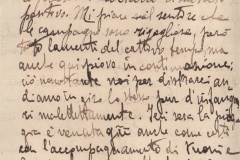 positivo. Mi piace nel sentire che
le campagne sono rigogliose, però
lamenti del cattivo tempo, ma
anche qui piove in continuazione;
ciò nonostante noi per distrarci an
diamo in giro lo stesso pur d'
maledettamente. Ieri sera la piog
gia è venuta giù anche come
con l'accompagnamento di tuoni e